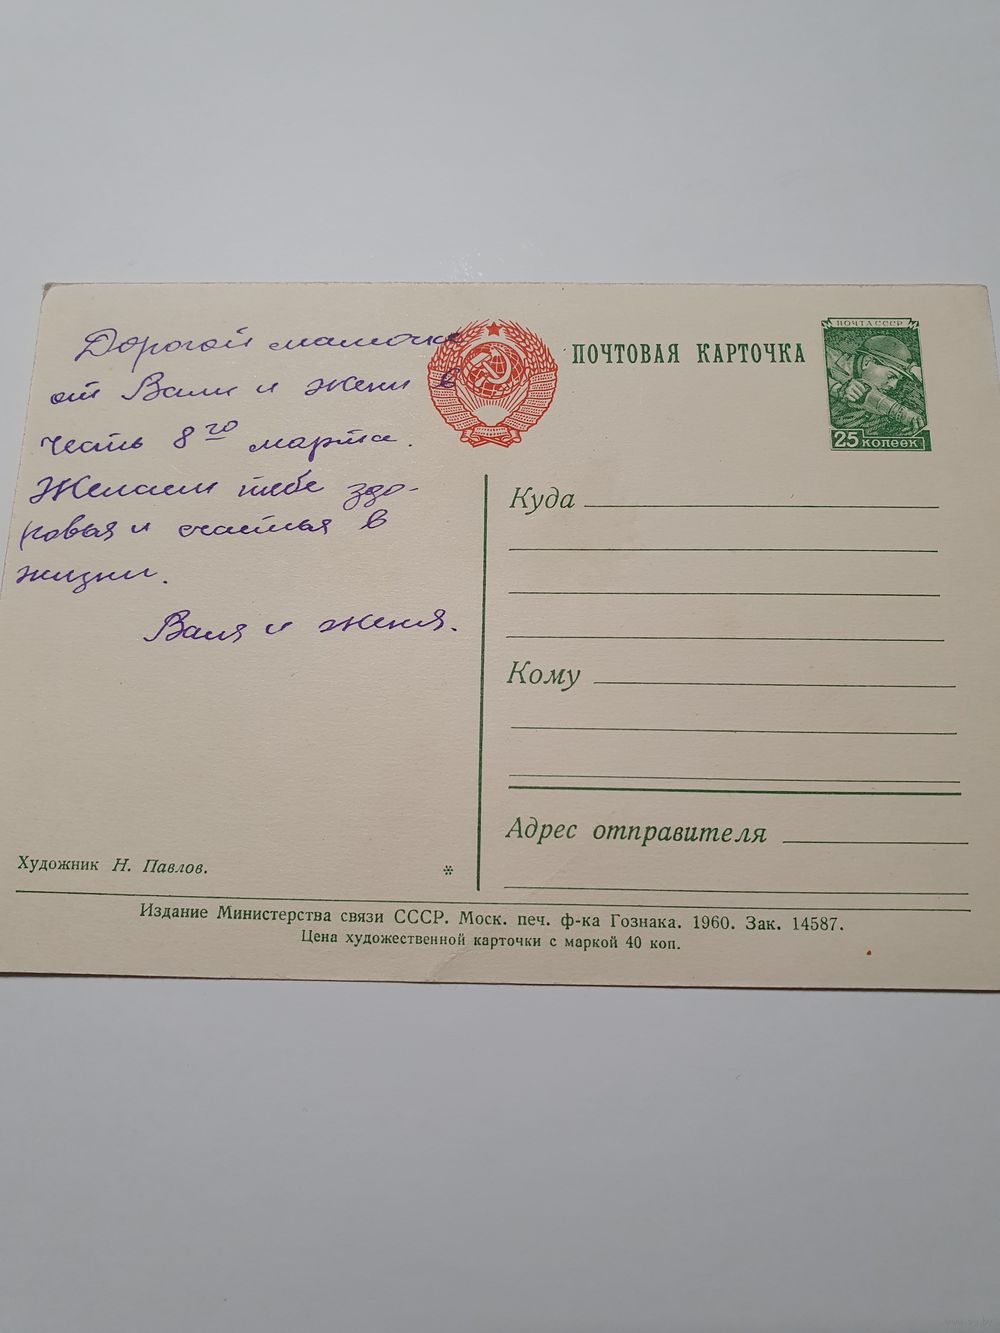 Дорогой мамочке
от Вали и Жени в
честь 8го марта.
Желаем тебе здо-
ровья и счастья в
жизни.
Валя и Женя.
ПОЧТОВАЯ КАРТОЧКА
ПОЧТА СССР
25 копеек
Куда
Кому
Адрес отправителя
Художник Н. Павлов.
*
Издание Министерства связи СССР. Моск. печ. ф-ка Гознака. 1960. Зак. 14587.
Цена художественной карточки с маркой 40 коп.